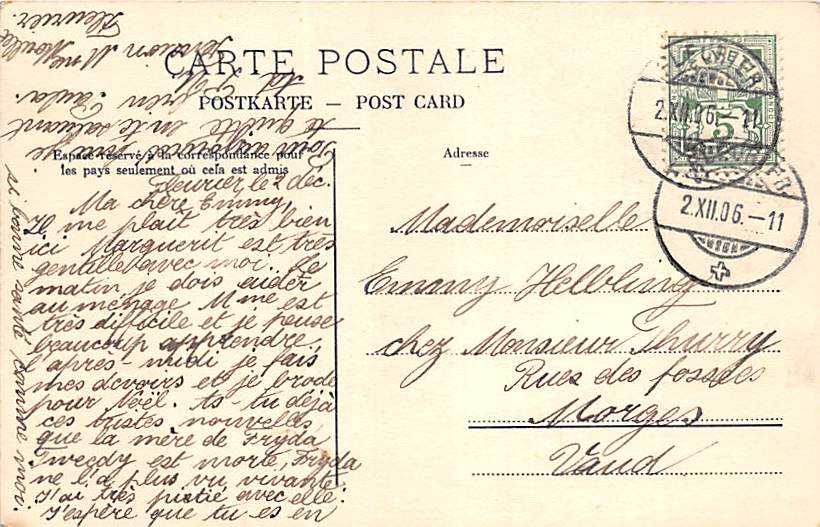 CARTE POSTALE
POSTKARTE — POST CARD
Espace réservé à la correspondance pour
les pays seulement où cela est admis
Adresse
FLEURIER
2.XII.06.—11
FLEURIER
2.XII.06.—11
5
Fleurier le 2 déc.
Ma chère Emmy,
Il me plaît très bien
ici Marguerit est très
gentille avec moi. Le
matin je dois aider
au ménage Mme est
très difficile et je peuse
beaucoup apprendre,
l'après-midi je fais
mes devoirs et je brode
pour Noël. As-tu déjà
ces tristes nouvelles,
que la mère de Fryda
Tweedy est morte, Fryda
ne l'a plus vu vivante.
J'ai très pietié avec elle.
J'espère que tu es en
si bonne santé, comme moi.
te quitte en te saluant
Paula.
Ad
pension Mme
Fleurier.
Mademoiselle
Emmy Helbling
chez Monsieur Thurry
Rues des fossées
Morges
Vaud